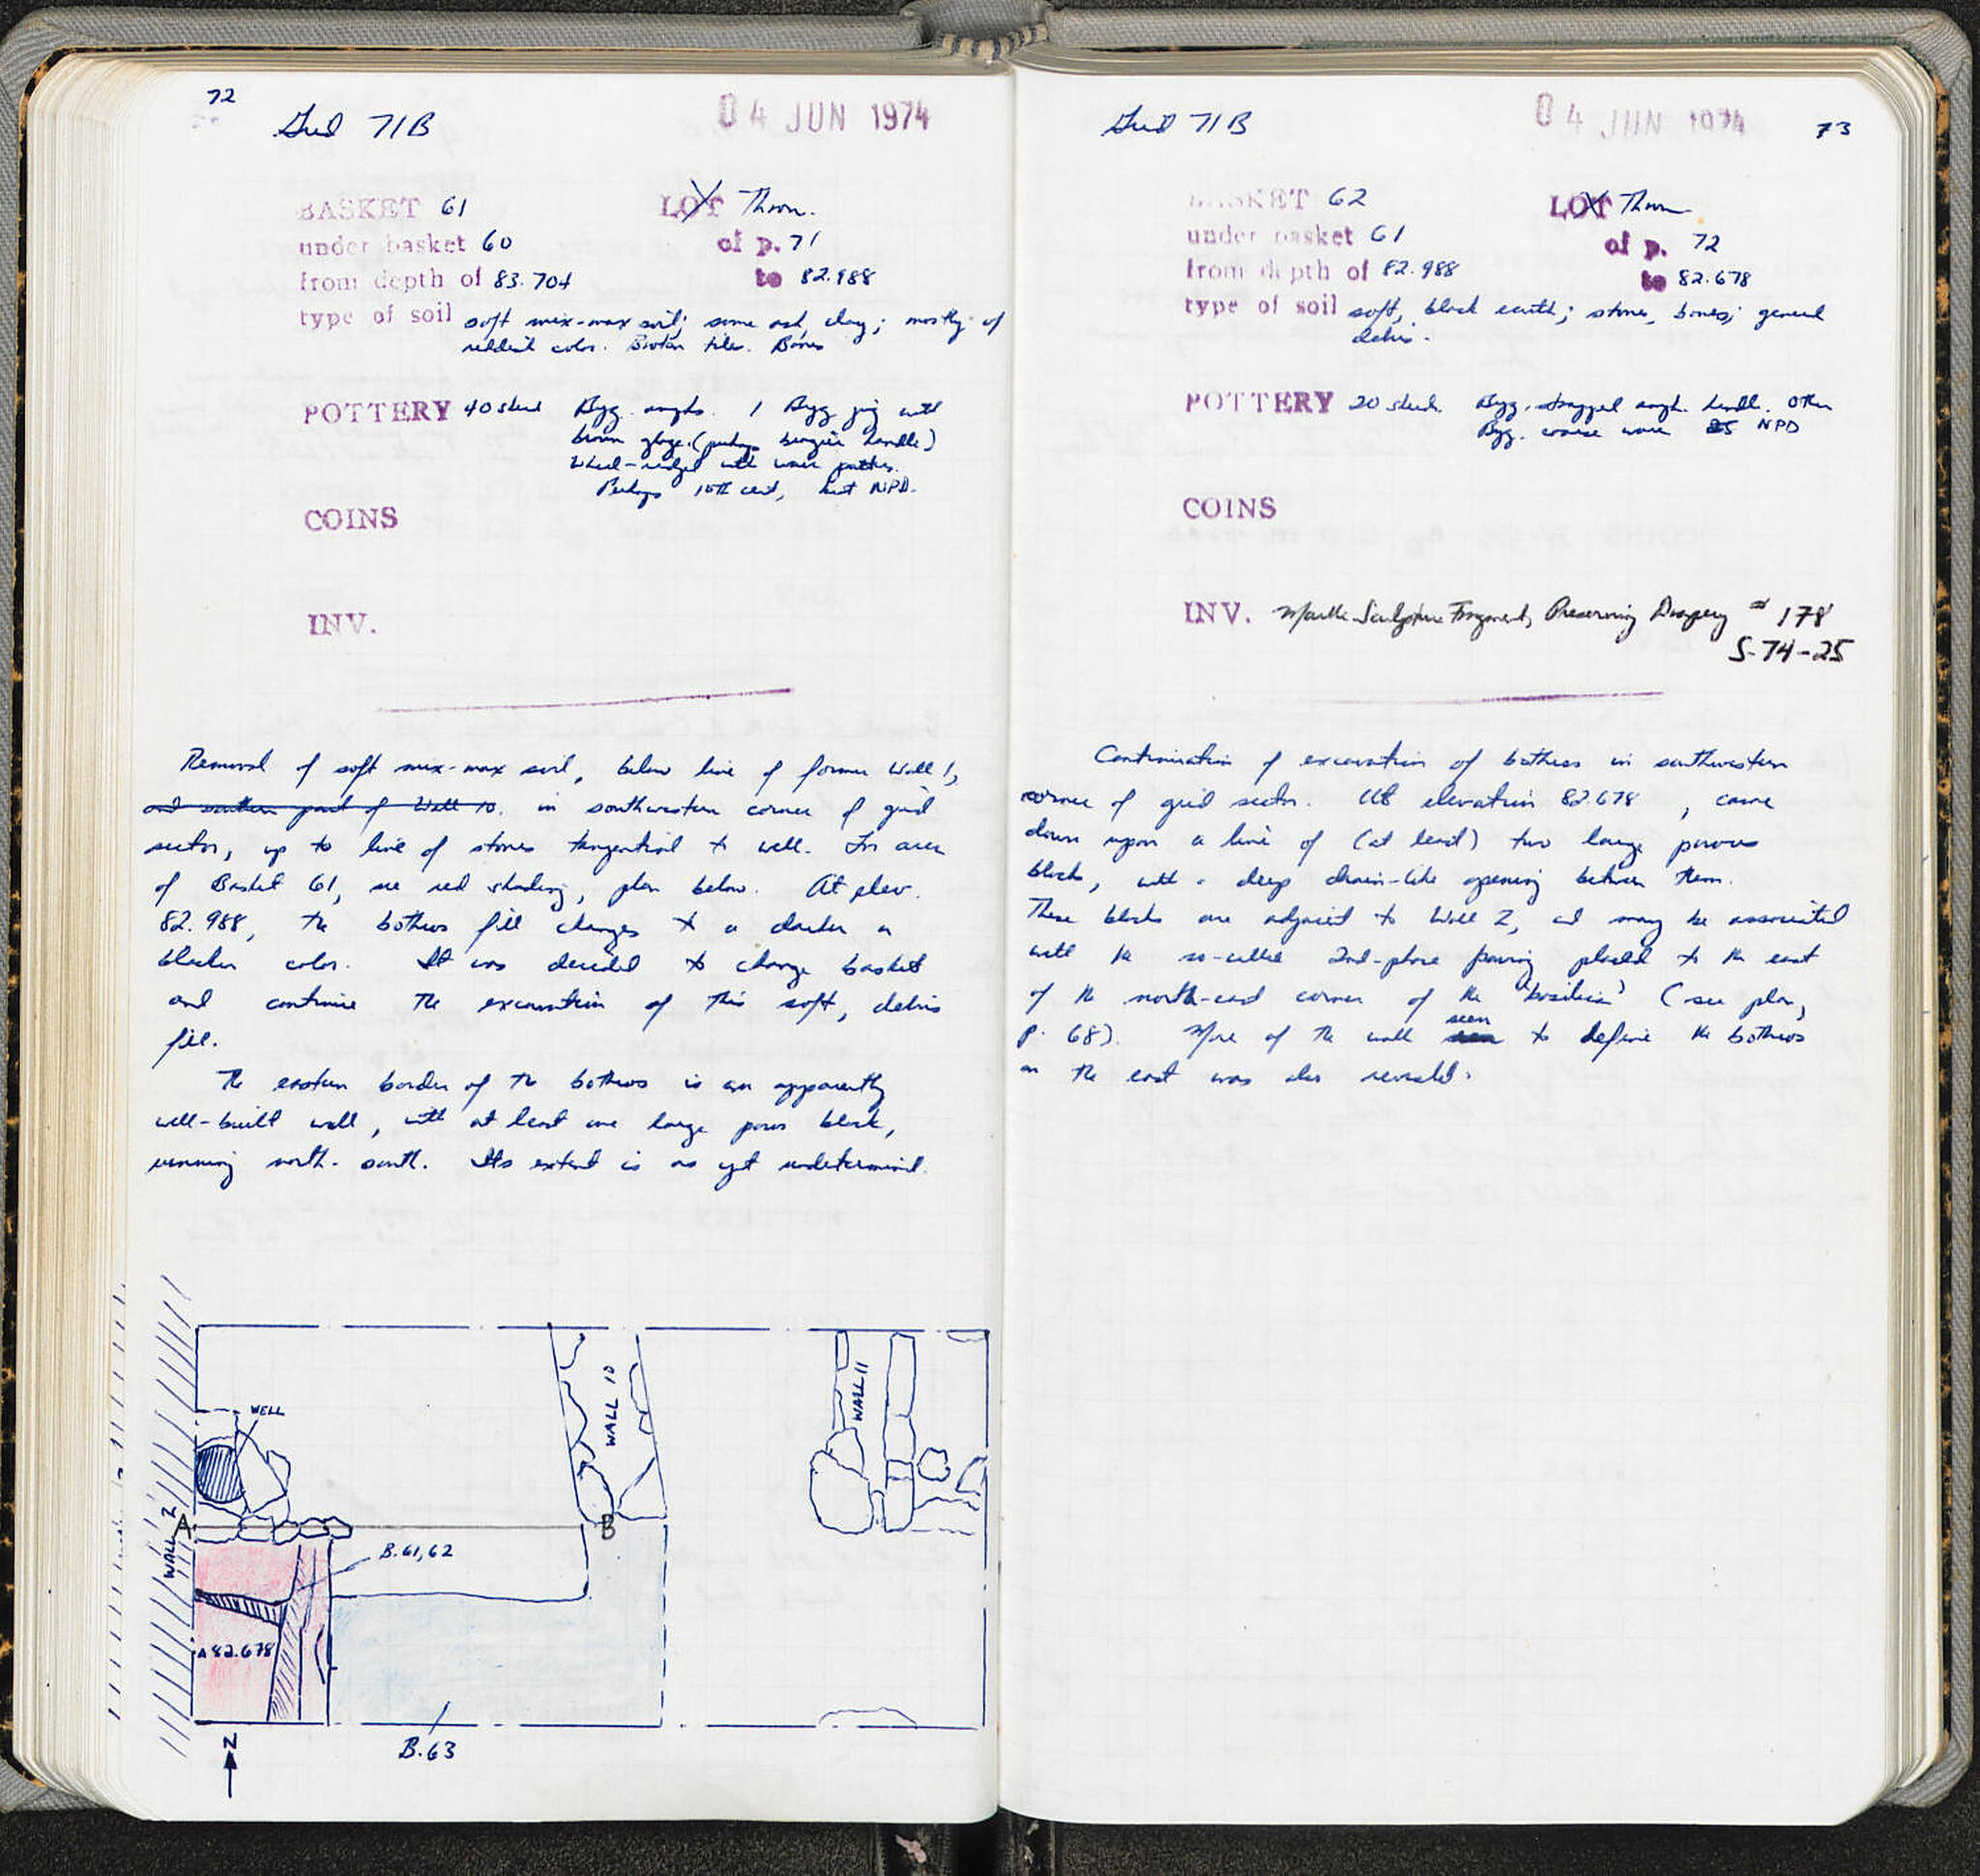 72
Grid 71B
04 JUN 1974
BASKET 61
LOT Thrown.
under basket 60
of p. 71
from depth of 83.704
to 82.988
type of soil soft mix-max soil; some ash, clay; mostly of
reddish color. Broken tiles. Bones
POTTERY 40 sherds Byz. amph. 1 Byz jug with
brown glaze. (perhaps brazier handle)
Wheel-ridged with wave pattern.
Perhaps 10th cent, but NPD.
COINS
INV.
Removal of soft mix-max soil, below line of former Wall 1,
and southern part of Wall 10. in southwestern corner of grid
sector, up to line of stones tangential to well. For area
of Basket 61, see red shading, plan below. At elev.
82.988, the bothros fill changes to a darker or
blacker color. It was decided to change basket
and continue the excavation of this soft, debris
fill.
The eastern border of the bothros is an apparently
well-built wall, with at least one large poros block,
running north-south. Its extent is as yet undetermined.
WELL
WALL 10
WALL 11
WALL 2
A
B
B.61,62
82.678
N
B.63
Grid 71B
04 JUN 1974
73
BASKET 62
LOT Thrown
under basket 61
of p. 72
from depth of 82.988
to 82.678
type of soil soft, black earth; stones, bones; general
debris.
POTTERY 20 sherds. Byz. straggel amph. handle. Other
Byz. coarse ware NPD
COINS
INV. Marble Sculpture Fragment, Preserving Drapery # 178
S-74-25
Continuation of excavation of bothros in southwestern
corner of grid sector. At elevation 82.678, came
down upon a line of (at least) two large poros
blocks, with a deep drain-like opening between them.
These blocks are adjacent to Wall 2, and may be associated
with the so-called 2nd-phase paving placed to the east
of the north-east corner of the "basilica" (see plan,
p. 68). More of the wall seen to define the bothros
on the east was also revealed.